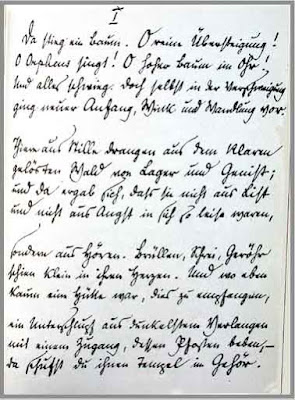 I
Da stieg ein Baum. O reine Übersteigung!
O Orpheus singt! O hoher Baum im Ohr!
Und alles schwieg. Doch selbst in der Verschweigung
ging neuer Anfang, Wink und Wandlung vor.
Tiere aus Stille drangen aus dem klaren
gelösten Wald von Lager und Genist;
und da ergab sich, dass sie nicht aus List
und nicht aus Angst in sich so leise waren,
sondern aus Hören. Brüllen, Schrei, Geröhr
schien klein in ihren Herzen. Und wo eben
kaum eine Hütte war, dies zu empfangen,
ein Unterschlupf aus dunkelstem Verlangen
mit einem Zugang, dessen Pfosten beben,—
da schufst du ihnen Tempel im Gehör.